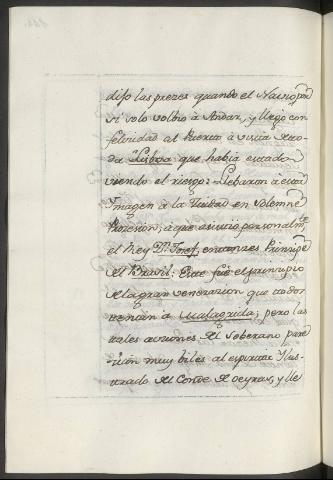 dijo las preces quando el Navio por
si solo volbio à Andar, y llegò con
felicidad al Puerto à vista de to-
da Lisboa que habia estado
viendo el riesgo: Llebaron à esta
Imagen à la Ciudad en solemne
Procesion, à que asistio personalmte
el Rey Dn Josef, entonces Principe
del Brasil; Este fue el principio
de la gran veneracion que todos
tenian à Malagrida; pero las
tales acciones del Soberano pare-
cian muy biles al espiritu Ilus-
trado del Conde de Oeyras, y lle